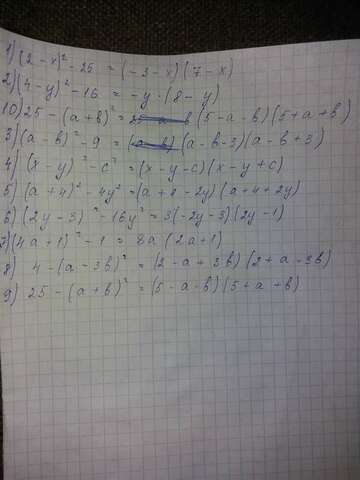 1) (2-x)²-25 = (-3-x)(7-x)
2) (4-y)²-16 = -y·(8-y)
10) 25-(a+b)² = (5-a-b)(5+a+b)
3) (a-b)²-9 = (a-b-3)(a-b+3)
4) (x-y)²-c² = (x-y-c)(x-y+c)
5) (a+4)²-4y² = (a+8-2y)(a+4+2y)
6) (2y-3)²-16y² = 3(-2y-3)(2y-1)
7) (4a+1)²-1 = 8a(2a+1)
8) 4-(a-3b)² = (2-a+3b)(2+a-3b)
9) 25-(a+b)² = (5-a-b)(5+a+b)